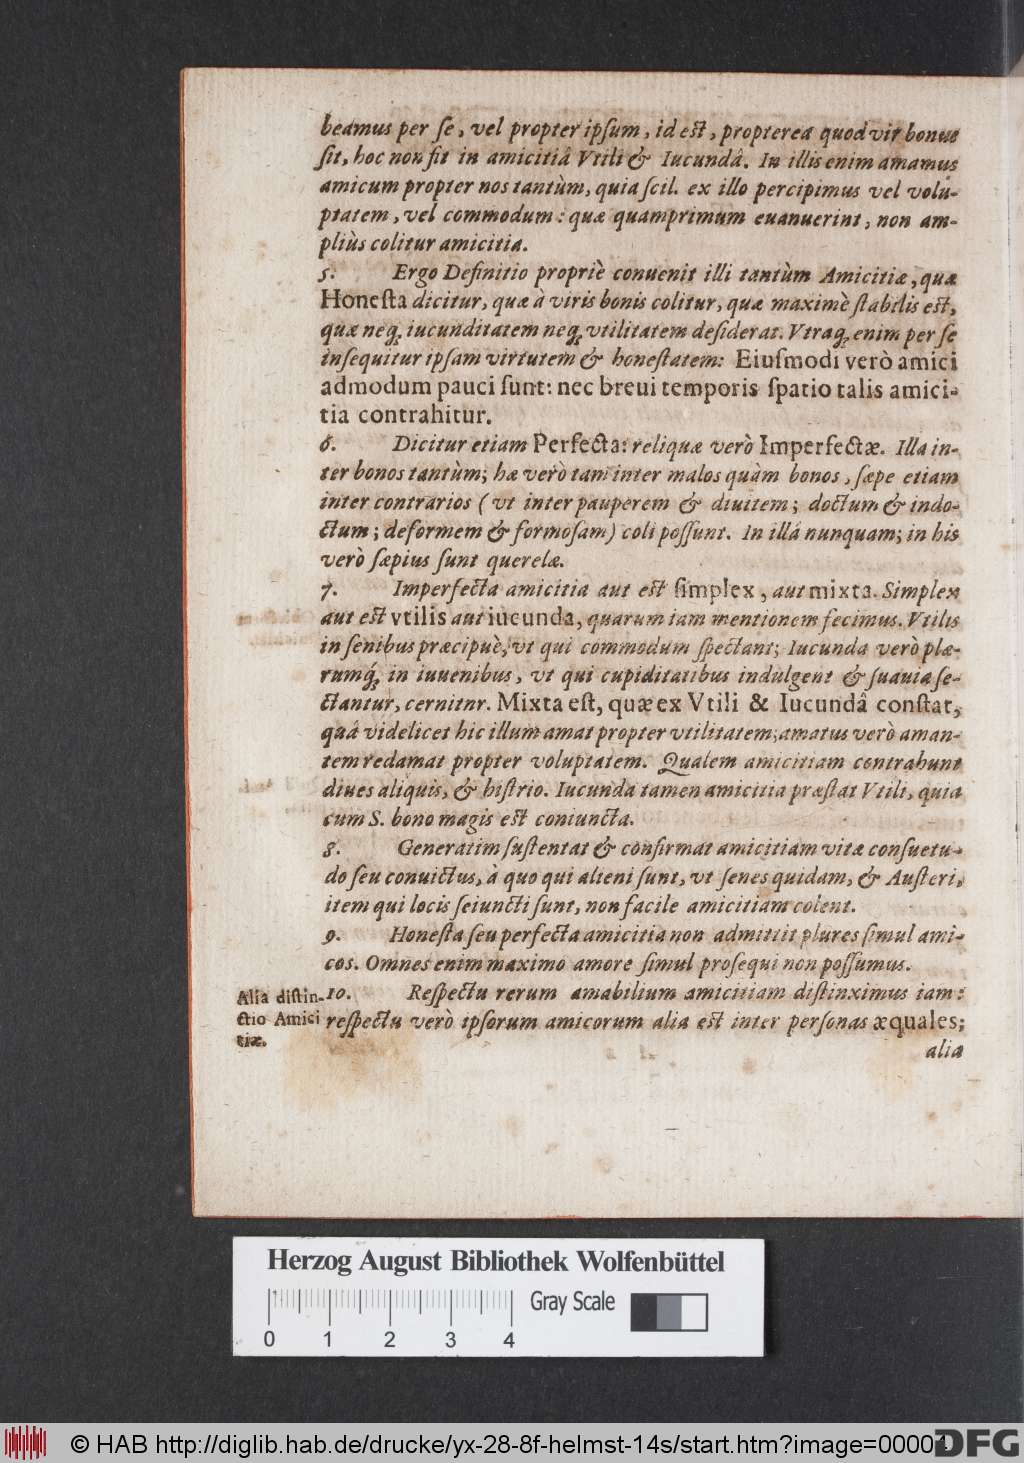 beamus per ſe, vel propter ipſum, id eſt, propterea quod vir bonus
ſit, hoc non fit in amicitiâ Vtili & Iucundâ. In illis enim amamus
amicum propter nos tantùm, quia ſcil. ex illo percipimus vel volu-
ptatem, vel commodum: quæ quamprimum euanuerint, non am-
pliùs colitur amicitia.
5. Ergo Definitio propriè conuenit illi tantùm Amicitiæ, quæ
Honeſta dicitur, quæ à viris bonis colitur, quæ maximè ſtabilis eſt,
quæ neq; iucunditatem neq; vtilitatem deſiderat. Vtraq; enim per ſe
inſequitur ipſam virtutem & honeſtatem: Eiuſmodi verò amici
admodum pauci ſunt: nec breui temporis ſpatio talis amici-
tia contrahitur.
6. Dicitur etiam Perfecta: reliquæ verò Imperfectæ. Illa in-
ter bonos tantùm; hæ verò tam inter malos quàm bonos, ſæpe etiam
inter contrarios (vt inter pauperem & diuitem; doctum & indo-
ctum; deformem & formoſam) coli poſſunt. In illâ nunquam; in his
verò ſæpius ſunt querelæ.
7. Imperfecta amicitia aut eſt ſimplex, aut mixta. Simplex
aut eſt vtilis aut iucunda, quarum iam mentionem fecimus. Vtilis
in ſenibus præcipuè, vt qui commodum ſpectant; Iucunda verò plæ-
rumq́; in iuuenibus, vt qui cupiditatibus indulgent & ſuauia ſe-
ctantur, cernitnr. Mixta eſt, quæ ex Vtili & Iucundâ conſtat,
quâ videlicet hic illum amat propter vtilitatem; amatus verò aman-
tem redamat propter voluptatem. Qualem amicitiam contrahunt
diues aliquis, & hiſtrio. Iucunda tamen amicitia præſtat Vtili, quia
cum S. bono magis eſt coniuncta.
8. Generatim ſuſtentat & confirmat amicitiam vitæ conſuetu-
do ſeu conuictus, à quo qui alieni ſunt, vt ſenes quidam, & Auſteri,
item qui locis ſeiuncti ſunt, non facile amicitiam colent.
9. Honeſta ſeu perfecta amicitia non admittit plures ſimul ami-
cos. Omnes enim maximo amore ſimul proſequi non poſſumus.
Alia diſtin-
ctio Amici
tiæ.
10. Reſpectu rerum amabilium amicitiam diſtinximus iam:
reſpectu verò ipſorum amicorum alia eſt inter perſonas æquales;
alia
Herzog August Bibliothek Wolfenbüttel
Gray Scale
0 1 2 3 4
© HAB http://diglib.hab.de/drucke/yx-28-8f-helmst-14s/start.htm?image=00004
DFG